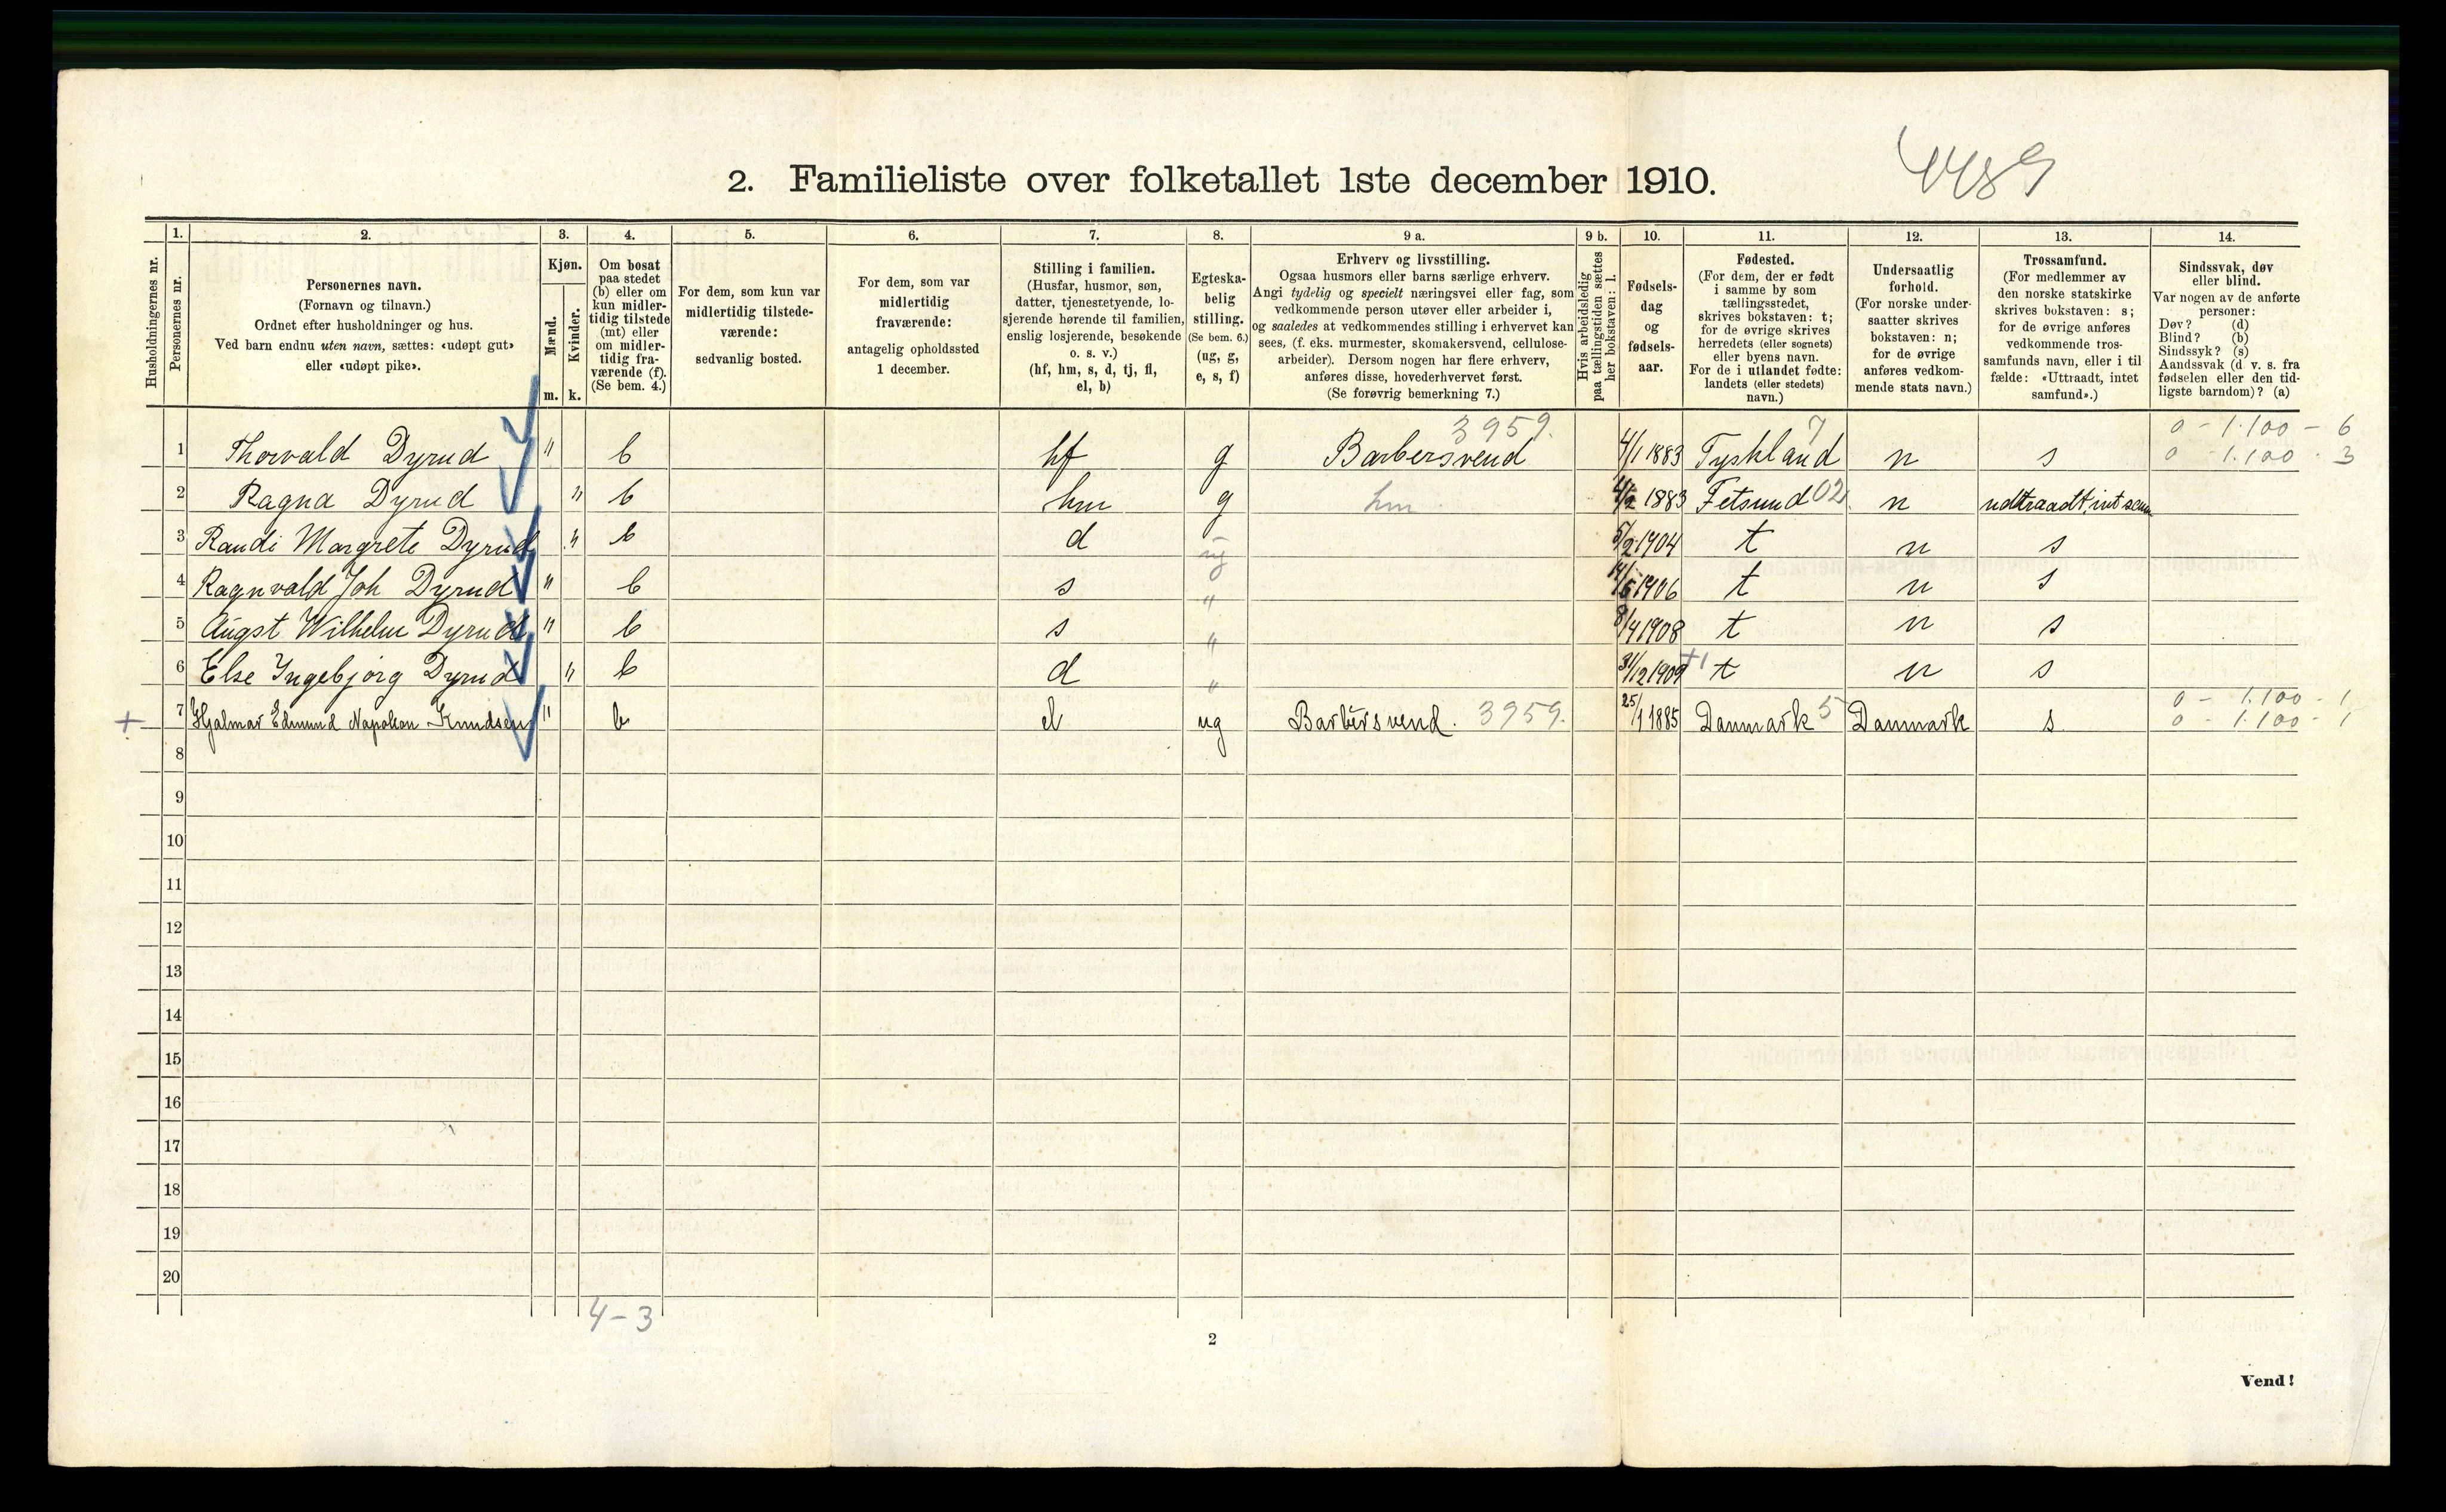 4489
2. Familieliste over folketallet 1ste december 1910.
1. 2. 3. 4. 5. 6. 7. 8. 9 a. 9 b. 10. 11. 12. 13. 14.
Husholdningernes nr.
Personernes nr.
Personernes navn.
(Fornavn og tilnavn.)
Ordnet efter husholdninger og hus.
Ved barn endnu uten navn, sættes: «udøpt gut»
eller «udøpt pike».
Kjøn.
Mænd.
Kvinder.
m. k.
Om bosat
paa stedet
(b) eller om
kun midler-
tidig tilstede
(mt) eller
om midler-
tidig fra-
værende (f).
(Se bem. 4.)
For dem, som kun var
midlertidig tilstede-
værende:
sedvanlig bosted.
For dem, som var
midlertidig
fraværende:
antagelig opholdssted
1 december.
Stilling i familien.
(Husfar, husmor, søn,
datter, tjenestetyende, lo-
sjerende hørende til familien,
enslig losjerende, besøkende
o. s. v.)
(hf, hm, s, d, tj, fl,
el, b)
Egteska-
belig
stilling.
(Se bem. 6.)
(ug, g,
e, s, f)
Erhverv og livsstilling.
Ogsaa husmors eller barns særlige erhverv.
Angi tydelig og specielt næringsvei eller fag, som
vedkommende person utøver eller arbeider i,
og saaledes at vedkommendes stilling i erhvervet kan
sees, (f. eks. murmester, skomakersvend, cellulose-
arbeider). Dersom nogen har flere erhverv,
anføres disse, hovederhvervet først.
(Se forøvrig bemerkning 7.)
Hvis arbeidsledig
paa tællingstiden sættes
her bokstaven: l.
Fødsels-
dag
og
fødsels-
aar.
Fødested.
(For dem, der er født
i samme by som
tællingsstedet,
skrives bokstaven: t;
for de øvrige skrives
herredets (eller sognets)
eller byens navn.
For de i utlandet fødte:
landets (eller stedets)
navn.)
Undersaatlig
forhold.
(For norske under-
saatter skrives
bokstaven: n;
for de øvrige
anføres vedkom-
mende stats navn.)
Trossamfund.
(For medlemmer av
den norske statskirke
skrives bokstaven: s;
for de øvrige anføres
vedkommende tros-
samfunds navn, eller i til
fælde: «Uttraadt, intet
samfund».)
Sindssvak, døv
eller blind.
Var nogen av de anførte
personer:
Døv? (d)
Blind? (b)
Sindssyk? (s)
Aandssvak (d v. s. fra
fødselen eller den tid-
ligste barndom)? (a)
3959. 7 0 - 1.100 - 6
1 Thorvald Dyrud " b hf g Barbersvend 4/1 1883 Tyskland n s 0 - 1.100 - 3
2 Ragna Dyrud " b hm g hm 4/2 1883 Fetsund 02 n udtraadt, int sam
3 Randi Margrete Dyrud " b d ug 5/2 1904 t n s
4 Ragnvald Joh Dyrud " b s " 14/6 1906 t n s
5 Augst Wilhelm Dyrud " b s " 8/4 1908 t n s
6 Else Ingebjørg Dyrud " b d " 31/12 1909 +1 t n s
0 - 1.100 - 1
+ 7 Hjalmar Edmund Napoleon Knudsen " b el ug Barbersvend. 3959. 25/1 1885 Danmark 5 Danmark s 0 - 1.100 - 1
8
9
10
11
12
13
14
15
16
17
18
19
20
4 - 3
2
Vend!